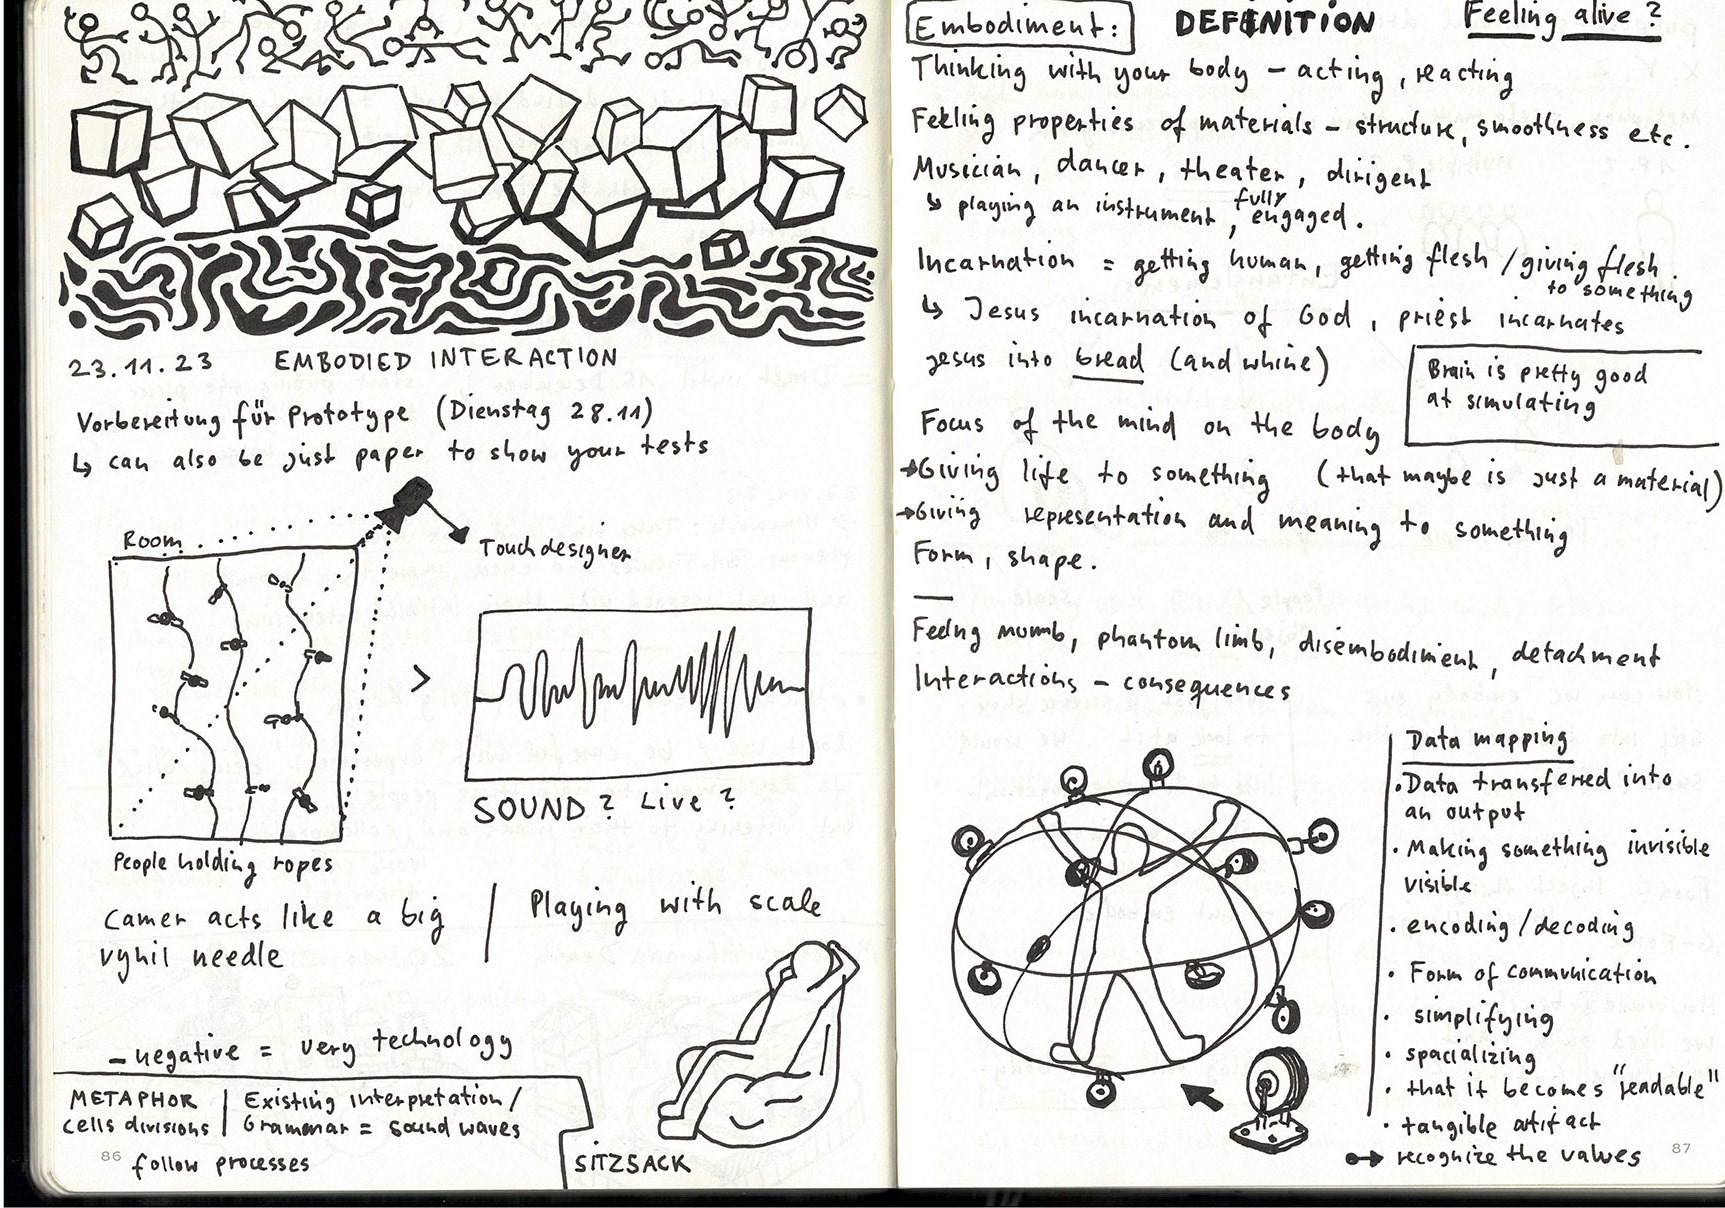 23.11.23 EMBODIED INTERACTION
Vorbereitung für Prototype (Dienstag 28.11)
↳ can also be just paper to show your tests
Room
Touchdesigner
>
SOUND? Live?
People holding ropes
Camer acts like a big
vynil needle
Playing with scale
- negative = very technology
METAPHOR
cells divisions
Existing interpretation /
Grammar = sound waves
follow processes
SITZSACK
86
Embodiment: DEFINITION Feeling alive?
Thinking with your body - acting, reacting
Feeling properties of materials - structure, smoothness etc.
Musician, dancer, theater, dirigent
↳ playing an instrument, fully engaged.
Incarnation = getting human, getting flesh / giving flesh.
to something
↳ Jesus incarnation of God, priest incarnates
jesus into bread (and whine)
Brain is pretty good
at simulating
Focus of the mind on the body
→ Giving life to something (that maybe is just a material)
→ Giving representation and meaning to something
Form, shape.
Feelng numb, phantom limb, disembodiment, detachment
Interactions - consequences
Data mapping
• Data transferred into
an output
• Making something invisible
visible
• encoding/decoding
• Form of communication
• simplifying
• spacializing
• that it becomes "readable"
• tangible artifact
→ recognize the values
87